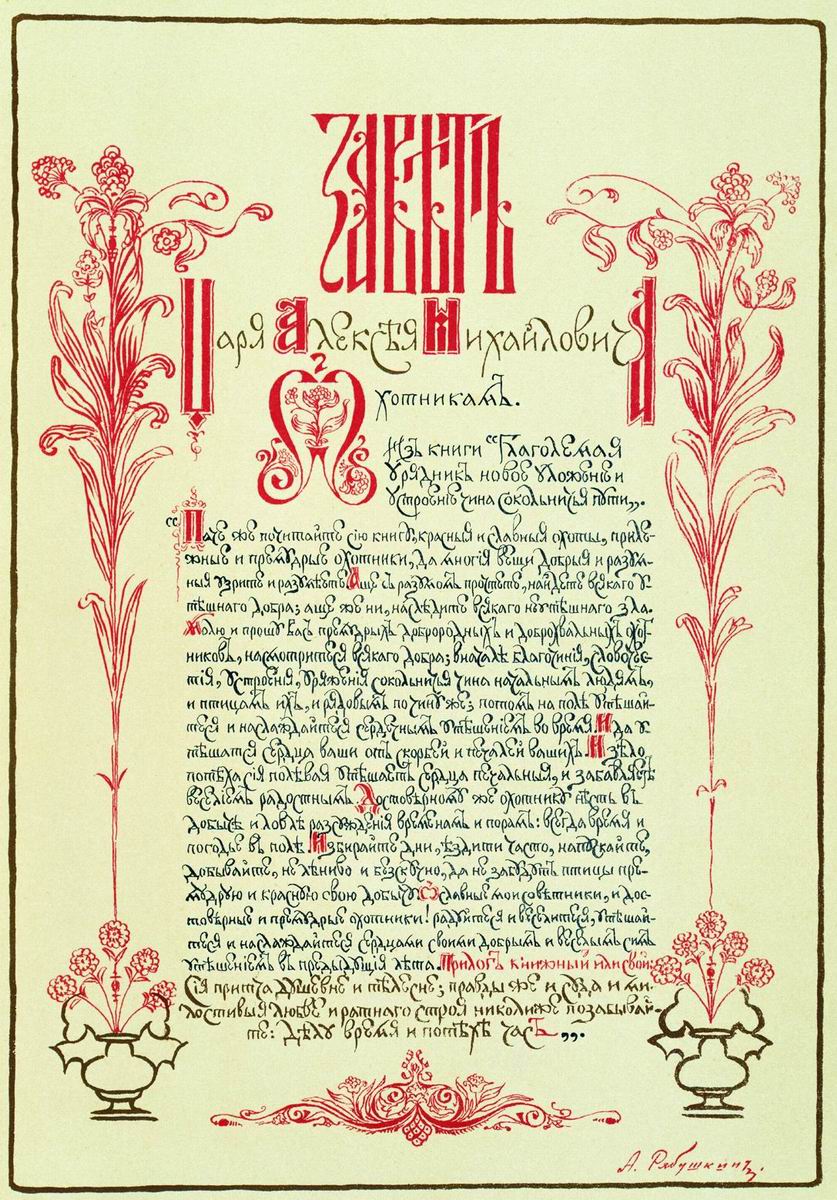 Завѣтъ
Царя Алексѣя Михайловича
Охотникамъ.
Изъ книги "Глаголемая
Урядникъ новое уложеніе и
устроеніе чина сокольничья пути".
"Паче же почитайте сію книгу, красныя и славныя охоты, прилѣ-
жныя и премудрые охотники, да многія вещи добрыя и разум-
ныя узрите и разумѣете. Аще съ разумомъ прочтете, найдете всякаго у-
тѣшнаго добра; аще же ни, наслѣдите всякаго неутѣшнаго зла.
Молю и прошу васъ премудрыхъ доброродныхъ и доброхвальныхъ охот-
никовъ, насмотритеся всякаго добра; вначалѣ благочинія, славочес-
тія, устроенія, уряженія сокольничья чина начальнымъ людямъ,
и птицамъ ихъ, и рядовымъ по чину же; потомъ на полѣ утѣшай-
теся и наслаждайтеся сердечнымъ утѣшеніемъ во время. И да у-
тѣшатся сердца ваши отъ скорбей и печалей вашихъ. И зѣло
потѣха сія полевая утѣшаетъ сердца печальныя, и забавляетъ
веселіемъ радостнымъ. Достовѣрному же охотнику нѣсть въ
добычѣ и ловлѣ разсужденія временамъ и порамъ: всегда время и
погодье въ полѣ. Избирайте дни, ѣздите часто, напускайте,
добывайте, не лѣниво и безскучно, да не забудутъ птицы пре-
мудрую и красную свою добычу. О славные мои совѣтники, и дос-
товѣрные и премудрые охотники! радуйтеся и веселитеся, утѣшай-
теся и наслаждайтеся сердцами своими добрымъ и веселымъ симъ
утѣшеніемъ въ предыдущія лѣта. Прилогъ книжный или свой:
Сія притча душевне и тѣлесне; правды же и суда и ми-
лостивыя любве и ратнаго строя николиже позабывай-
те: дѣлу время и потѣхѣ часъ".
А. Рябушкинъ.